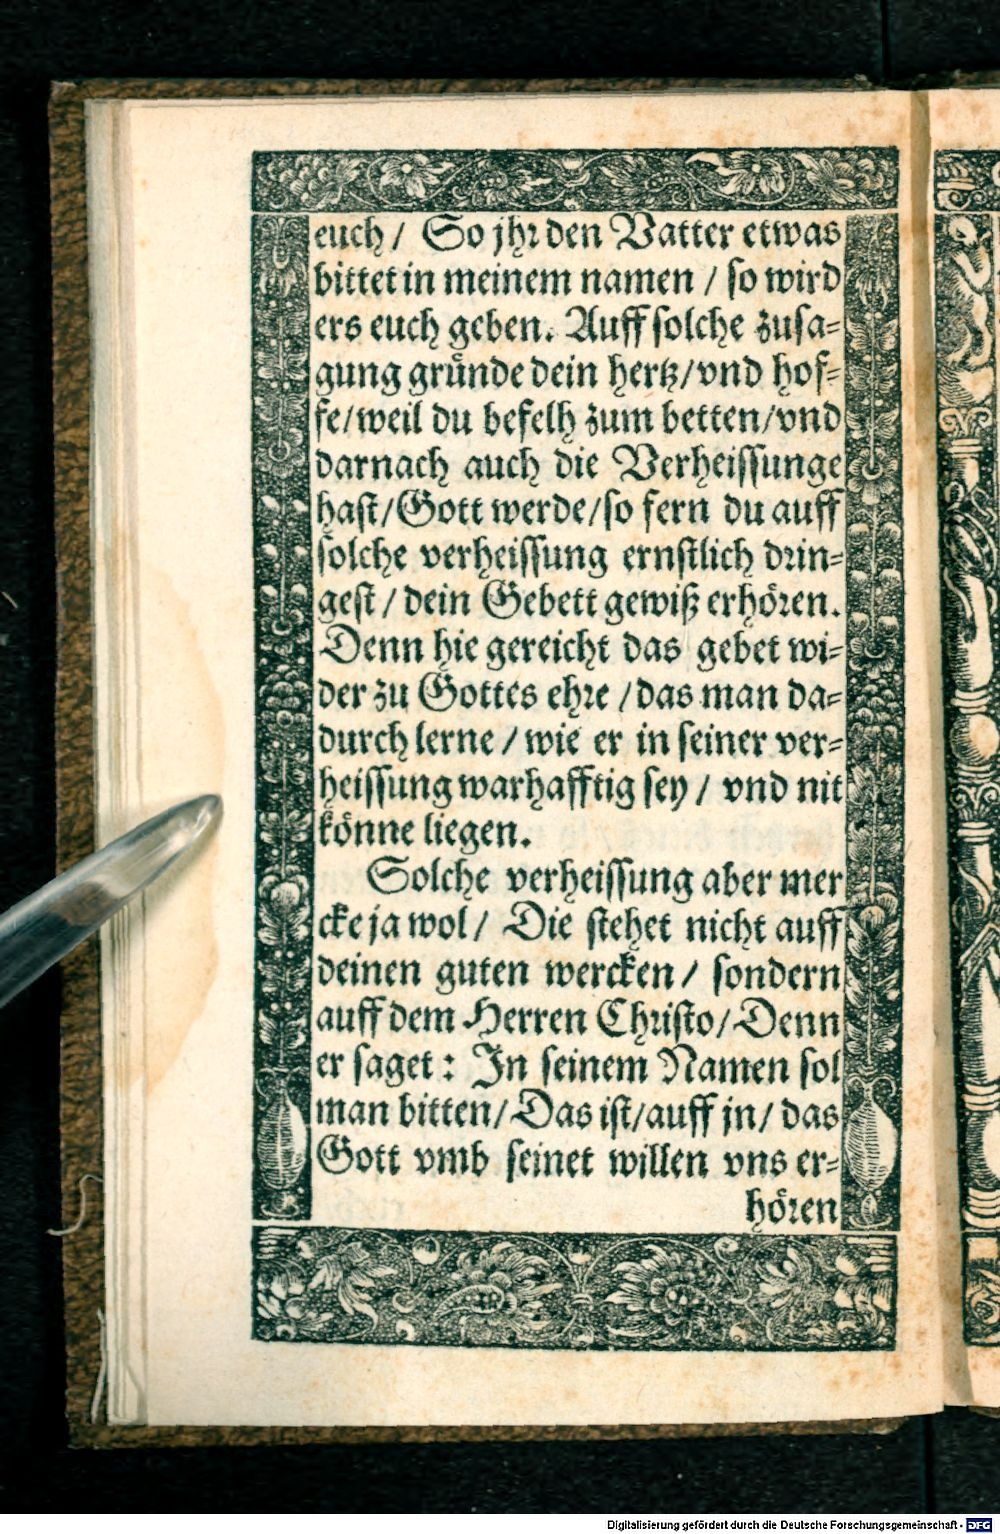 euch / So jhr den Vatter etwas
bittet in meinem namen / so wird
ers euch geben. Auff solche zusa=
gung gründe dein hertz/vnd hof=
fe/weil du befelh zum betten/vnd
darnach auch die Verheissunge
hast/Gott werde/so fern du auff
solche verheissung ernstlich drin=
gest / dein Gebett gewiß erhören.
Denn hie gereicht das gebet wi=
der zu Gottes ehre / das man da=
durch lerne / wie er in seiner ver=
heissung warhafftig sey / vnd nit
könne liegen.
Solche verheissung aber mer
cke ja wol / Die stehet nicht auff
deinen guten wercken / sondern
auff dem Herren Christo/Denn
er saget : In seinem Namen sol
man bitten/Das ist/auff jn/ das
Gott vmb seinet willen vns er=
hören
Digitalisierung gefördert durch die Deutsche Forschungsgemeinschaft - DFG